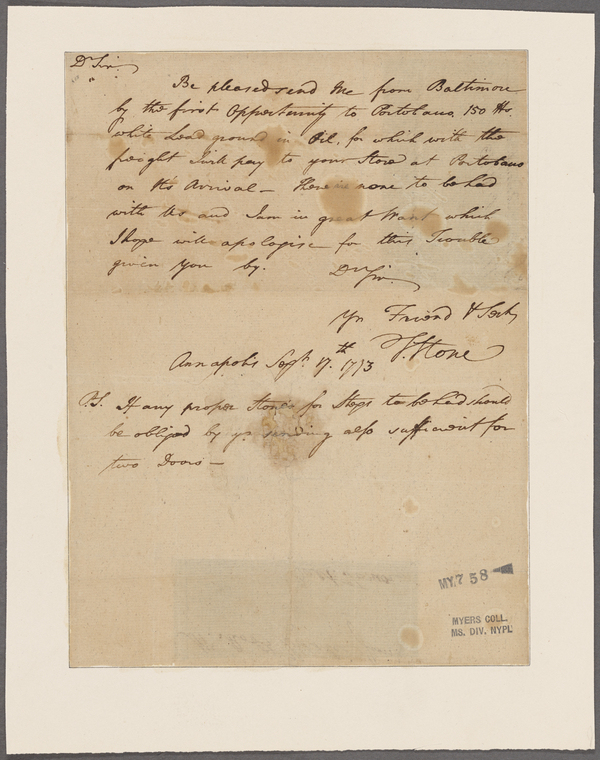 Dr Sir.
Be pleased send Me from Baltimore
by the first Oppertunity to Portobaco 150 lb.
white Lead ground in Oil, for which with the
freight I will pay to your Store at Portobaco
on it's Arrival — There is none to be had
with Us and I am in great Want which
I hope will apologise for this Trouble
given You by. Dr Sir.
Yr Friend & Sert,
T. Stone
Annapolis Sept. 17.th 1773
P.S. If any proper Stones for Steps to be had should
be obliged by yr sending also sufficient for
two Doors —
MY. 7 58
MYERS COLL.
MS. DIV. NYPL